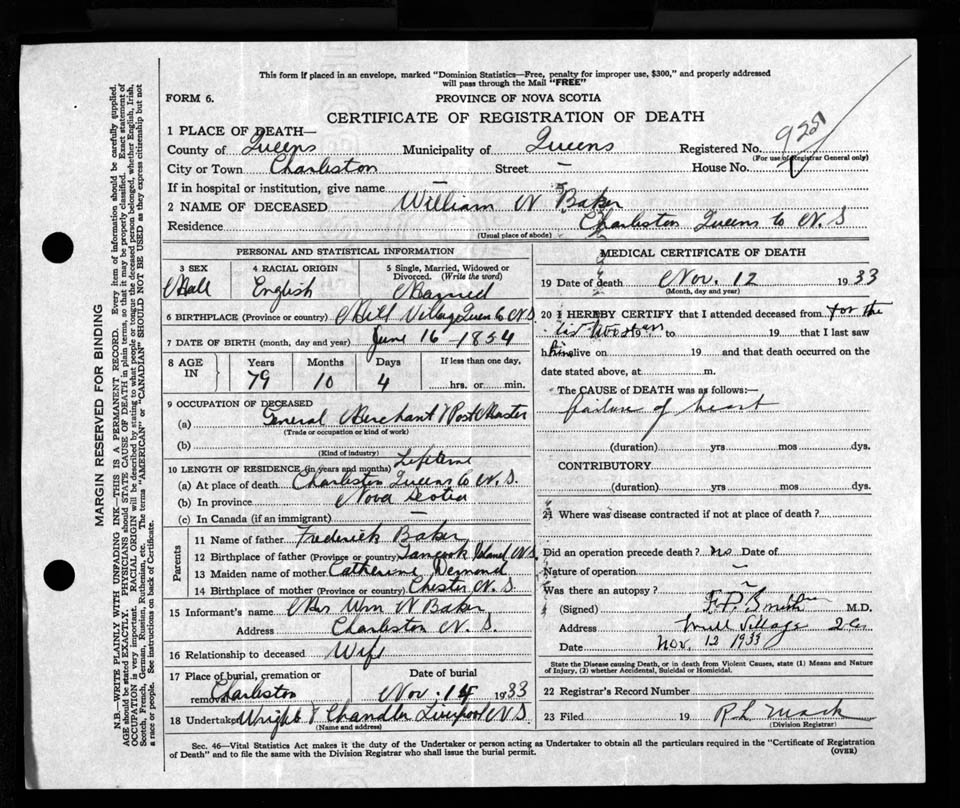 This form if placed in an envelope, marked "Dominion Statistics—Free, penalty for improper use, $300," and properly addressed
will pass through the Mail "FREE"
FORM 6.
PROVINCE OF NOVA SCOTIA
CERTIFICATE OF REGISTRATION OF DEATH
1 PLACE OF DEATH—
County of Queens Municipality of Queens Registered No.
(For use of Registrar General only)
City or Town Charleston Street – House No.
If in hospital or institution, give name –
2 NAME OF DECEASED William N Baker
Residence Charleston Queens Co N.S
(Usual place of abode)
PERSONAL AND STATISTICAL INFORMATION
3 SEX
4 RACIAL ORIGIN
5 Single, Married, Widowed or
Divorced. (Write the word)
Mall English Married
6 BIRTHPLACE (Province or country) Mill Village Queen Co N.S.
7 DATE OF BIRTH (month, day and year) June 16 1854
8 AGE IN
Years Months Days If less than one day,
79 10 4 hrs. or min.
9 OCCUPATION OF DECEASED
(a) General Merchant & Post Master
(Trade or occupation or kind of work)
(b)
(Kind of industry)
10 LENGTH OF RESIDENCE (in years and months) Lifetime
(a) At place of death Charleston Queens Co N.S.
(b) In province Nova Scotia
(c) In Canada (if an immigrant) –
Parents
11 Name of father Frederick Baker
12 Birthplace of father (Province or country) Tancook Island N.S.
13 Maiden name of mother Catherine Demond
14 Birthplace of mother (Province or country) Chester N.S.
15 Informant's name Mrs Wm N Baker
Address Charleston N.S.
16 Relationship to deceased Wife
17 Place of burial, cremation or
removal Charleston
Date of burial
Nov. 14 1933
18 Undertaker Wright & Chandler Liverpool N.S.
(Name and address)
MEDICAL CERTIFICATE OF DEATH
19 Date of death Nov. 12 1933
(Month, day and year)
20 I HEREBY CERTIFY that I attended deceased from for the
to 19 that I last saw
him alive on 19 and that death occurred on the
date stated above, at m.
The CAUSE of DEATH was as follows:—
failure of heart
(duration) yrs mos dys.
CONTRIBUTORY
(duration) yrs mos dys.
21 Where was disease contracted if not at place of death?
Did an operation precede death? no Date of
Nature of operation –
Was there an autopsy? ~
(Signed) F.P. Smith M.D.
Address Mill Village
Date Nov. 12 1933
State the Disease causing Death, or in death from Violent Causes, state (1) Means and Nature
of Injury, (2) whether Accidental, Suicidal or Homicidal.
22 Registrar's Record Number
23 Filed 19 R L Mack
(Division Registrar)
Sec. 46—Vital Statistics Act makes it the duty of the Undertaker or person acting as Undertaker to obtain all the particulars required in the "Certificate of Registration
of Death" and to file the same with the Division Registrar who shall issue the burial permit. (OVER)
MARGIN RESERVED FOR BINDING
N.B.—WRITE PLAINLY WITH UNFADING INK—THIS IS A PERMANENT RECORD. Every item of information should be carefully supplied.
AGE should be stated EXACTLY. PHYSICIANS should STATE CAUSE OF DEATH in plain terms, so that it may be properly classified. Exact statement of
OCCUPATION is very important. RACIAL ORIGIN will be described by stating to what people or tongue the deceased person belonged, whether English, Irish,
Scotch, French, German, Russian, Ruthenian, etc. The terms "AMERICAN" or "CANADIAN" SHOULD NOT BE USED as they express citizenship but not
a race or people. See instructions on back of Certificate.